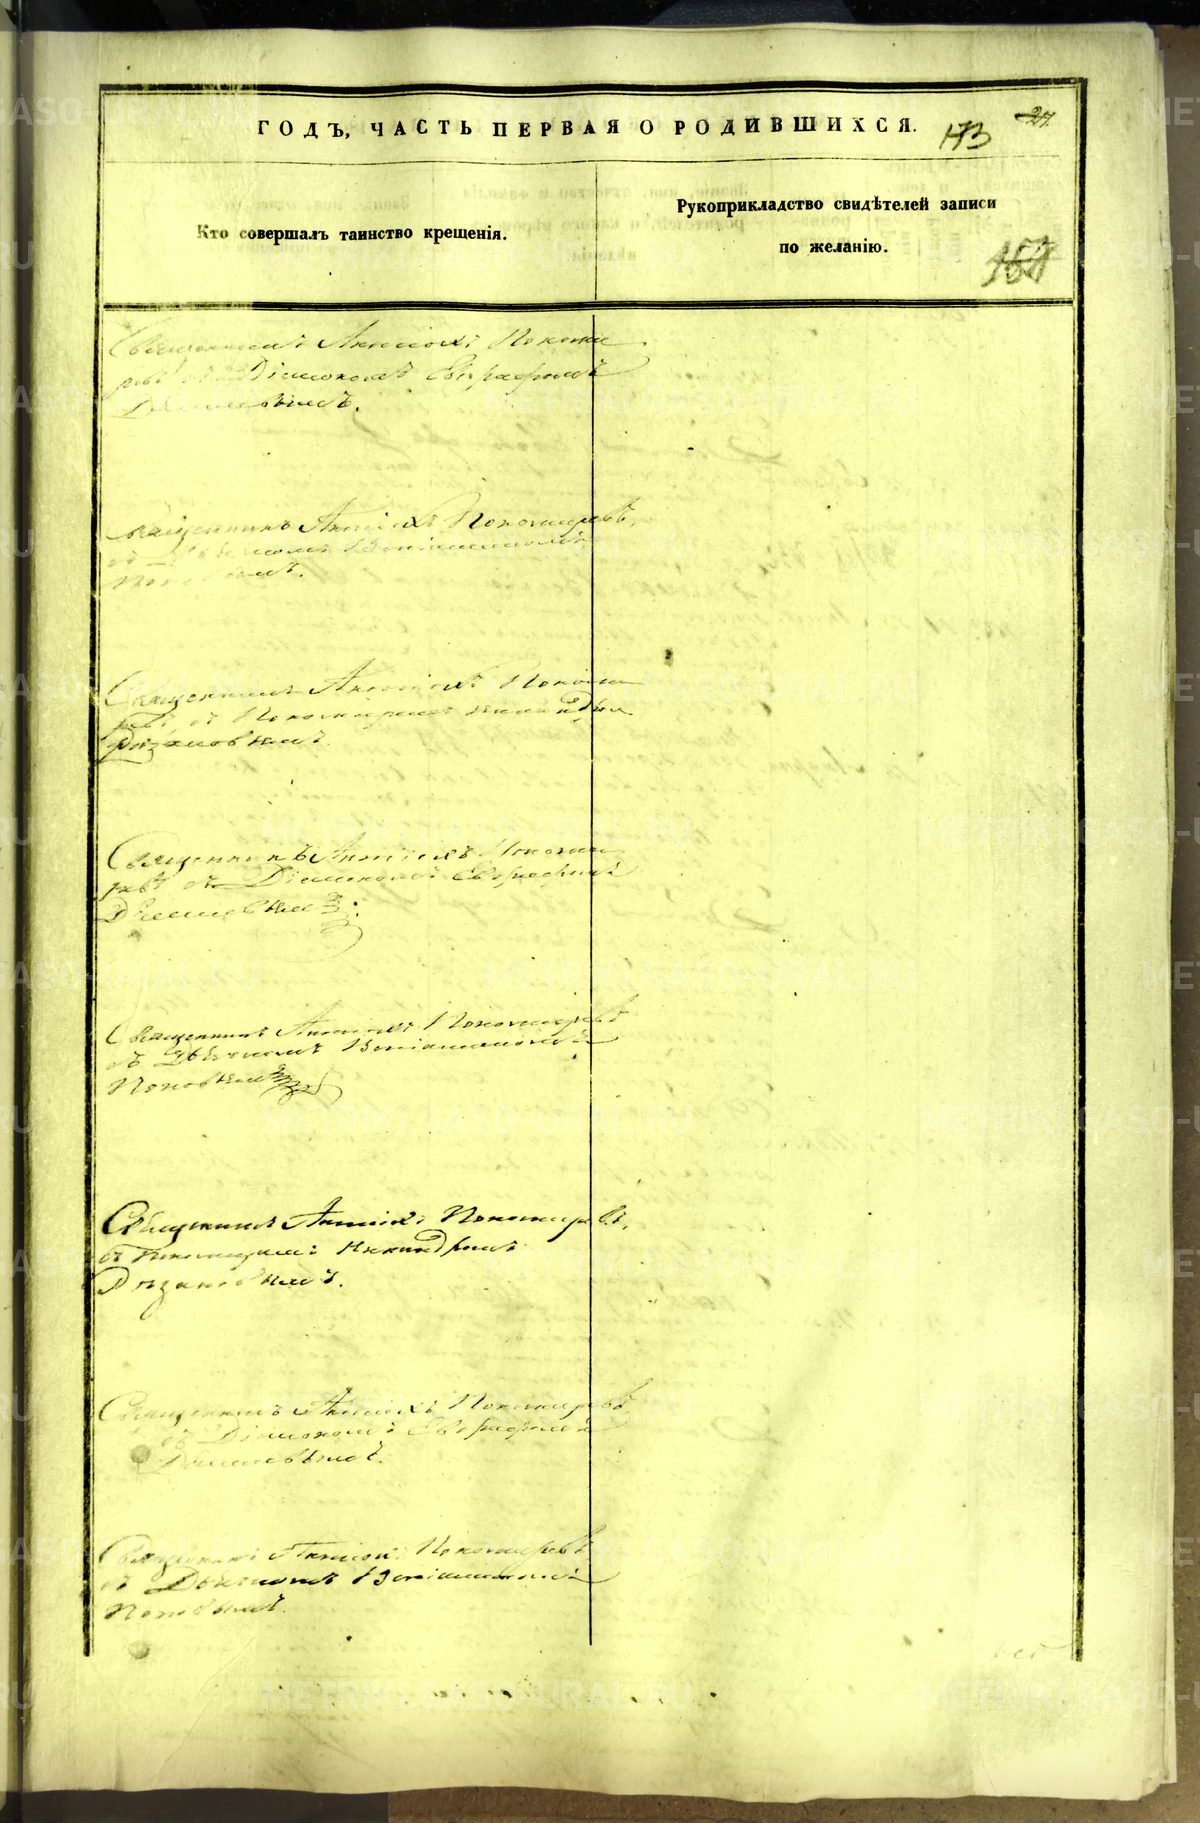 ГОДЪ, ЧАСТЬ ПЕРВАЯ О РОДИВШИХСЯ.
173
27.
Кто совершалъ таинство крещенія.
Рукоприкладство свидѣтелей записи
по желанію.
Священникъ Антіохъ Понома
ревъ съ Діакономъ Евграфомъ
Священникъ Антіохъ Пономаревъ,
съ Дьячкомъ Веніаминомъ
Поповымъ.
Священникъ Антіохъ Понома
ревъ съ Пономаремъ Никандромъ
Рязановымъ.
Священникъ Антіохъ Понома
ревъ съ Діакономъ Евграфомъ
Священникъ Антіохъ Пономаревъ
съ Дьячкомъ Веніаминомъ
Поповымъ
Священникъ Антіохъ Пономаревъ,
съ Пономаремъ Никандромъ
Рязановымъ.
Священникъ Антіохъ Пономаревъ
съ Діакономъ Евграфомъ
Священникъ Антіохъ Пономаревъ
съ Дьячкомъ Веніаминомъ
Поповымъ.